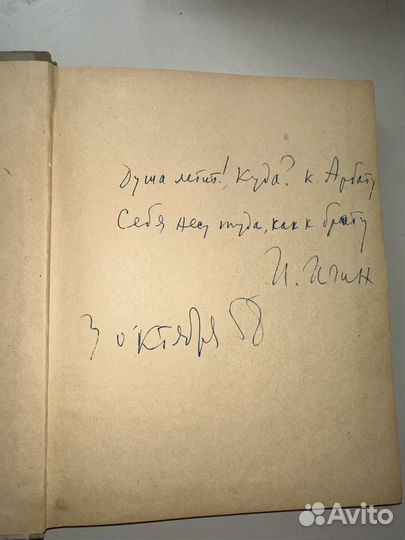 Душа летит! Куда? к Арбату
Себя несу туда, как к брату
И. Игин
3 октября 68
Avito